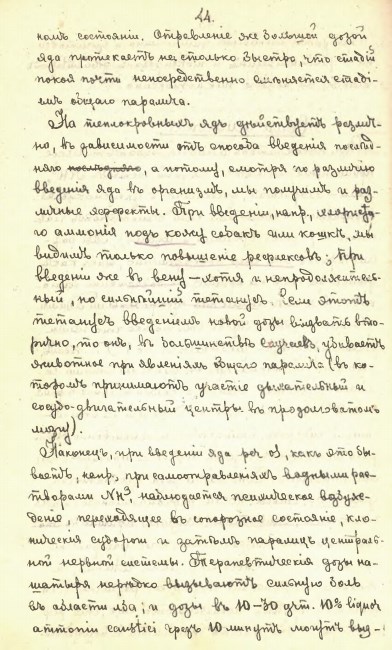 44.
номъ состоянiи. Отравленiе же большой дозой
яда протекаетъ настолько быстро, что стадiй
покоя почти непосредственно смѣняется стадi-
емъ общаго паралича.
На теплокровныхъ ядъ дѣйствуетъ различ-
но, въ зависимости отъ способа введенiя послѣд-
няго, а потому, смотря по различiю
введенiя яда въ организмъ, мы получимъ и раз-
личные эффекты. При введенiи, напр., хлористо-
го аммонiя подъ кожу собакѣ или кошкѣ, мы
видимъ только повышенiе рефлексовъ; при
введенiи же въ вену – хотя и непродолжитель-
ный, но сильнѣйшiй тетанусъ. Если этотъ
тетанусъ введенiемъ новой дозы вызвать вто-
рично, то онъ, въ большинствѣ случаевъ, убиваетъ
животное при явленiяхъ общаго паралича (въ ко-
торомъ принимаютъ участiе дыхательный и
сосудо-двигательный центры въ продолговатомъ
мозгу).
Наконецъ, при введенiи яда per os, какъ это бы-
ваетъ, напр., при самоотравленiяхъ водными рас-
творами NH³, наблюдается психическое возбуж-
денiе, переходящее въ сопорозное состоянiе, кло-
ническiя судороги и затѣмъ параличъ централь-
ной нервной системы. Терапевтическiя дозы на-
шатыря нерѣдко вызываютъ сильную боль
въ области лба; и дозы въ 10–30 grm. 10% liquor
ammonii caustici чрезъ 10 минутъ могутъ выз-